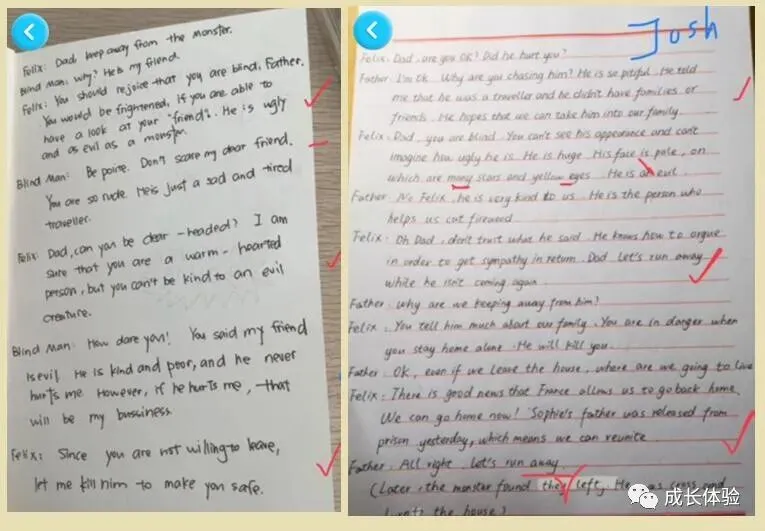 Felix: Dad, keep away from the monster.
Blind Man: Why? He is my friend.
Felix: You should rejoice that you are blind, Father.
You would be frightened, if you are able to
have a look at your "friend". He is ugly
and as evil as a monster.
Blind Man: Be polite. Don't scare my dear friend.
You are so rude. He is just a sad and tired
traveller.
Felix: Dad, can you be clear-headed? I am
sure that you are a warm-hearted
person, but you can't be kind to an evil
creature.
Blind Man: How dare you! You said my friend
is evil. He is kind and poor, and he never
hurts me. However, if he hurts me, that
will be my bussiness.
Felix: Since you are not willing to leave,
let me kill him to make you safe.
Josh
Felix: Dad, are you OK? Did he hurt you?
Father: I'm OK. Why are you chasing him? He is so pitiful. He told
me that he was a traveller and he didn't have families or
friends. He hopes that we can take him into our family.
Felix: Dad, you are blind. You can't see his appearance and can't
imagine how ugly he is. He is huge. His face is pale, on
which are many scars and yellow eyes. He is an evil.
Father: No Felix, he is very kind to us. He is the person who
helps us cut firewood.
Felix: Oh Dad, don't trust what he said. He knows how to argue
in order to get sympathy in return. Dad. Let's run away
while he isn't coming again.
Father: Why are we keeping away from him?
Felix: You tell him much about our family. You are in danger when
you stay home alone. He will kill you.
Father: OK, even if we leave the house, where are we going to live
Felix: There is good news that France allows us to go back home.
We can go home now! Sophie's father was released from
prison yesterday, which means we can reunite.
Father: All right. Let's run away.
(Later, the monster found they left. He was cross and
burnt the house)
成长体验